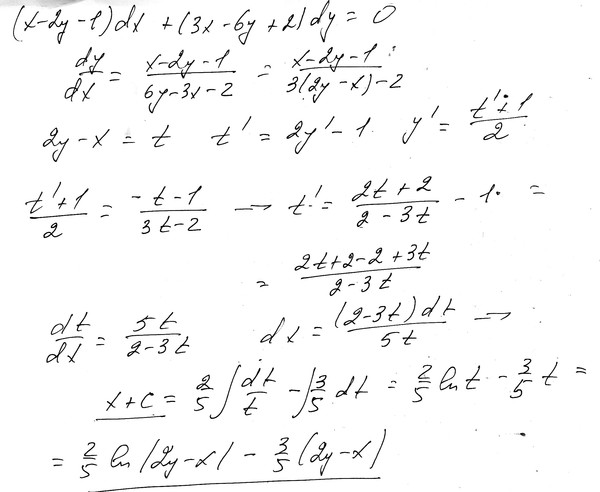 (x-2y-1)dx + (3x-6y+2)dy = 0
dy/dx = (x-2y-1)/(6y-3x-2) = (x-2y-1)/(3(2y-x)-2)
2y-x = t t' = 2y'-1 y' = (t'+1)/2
(t'+1)/2 = (-t-1)/(3t-2) → t' = (2t+2)/(2-3t) - 1 =
= (2t+2-2+3t)/(2-3t)
dt/dx = 5t/(2-3t) dx = (2-3t)dt/5t →
x+c = 2/5 ∫ dt/t - ∫ 3/5 dt = 2/5 ln t - 3/5 t =
= 2/5 ln |2y-x| - 3/5 (2y-x)